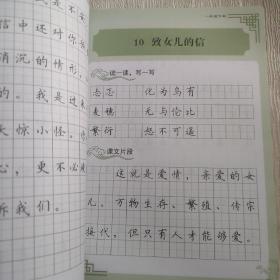 不
信中还对你
消沉的情形
的。我是过来
大惊小怪。
心，更不必
诉我们。
一年级下册
10 致女儿的信
读一读，写一写
怎 化为乌有
麦穗 无与伦比
繁衍 怒不可遏
课文片段
这就是爱情，亲爱的女
儿。万物生存、繁殖、传宗
接代，但只有人才能够爱。